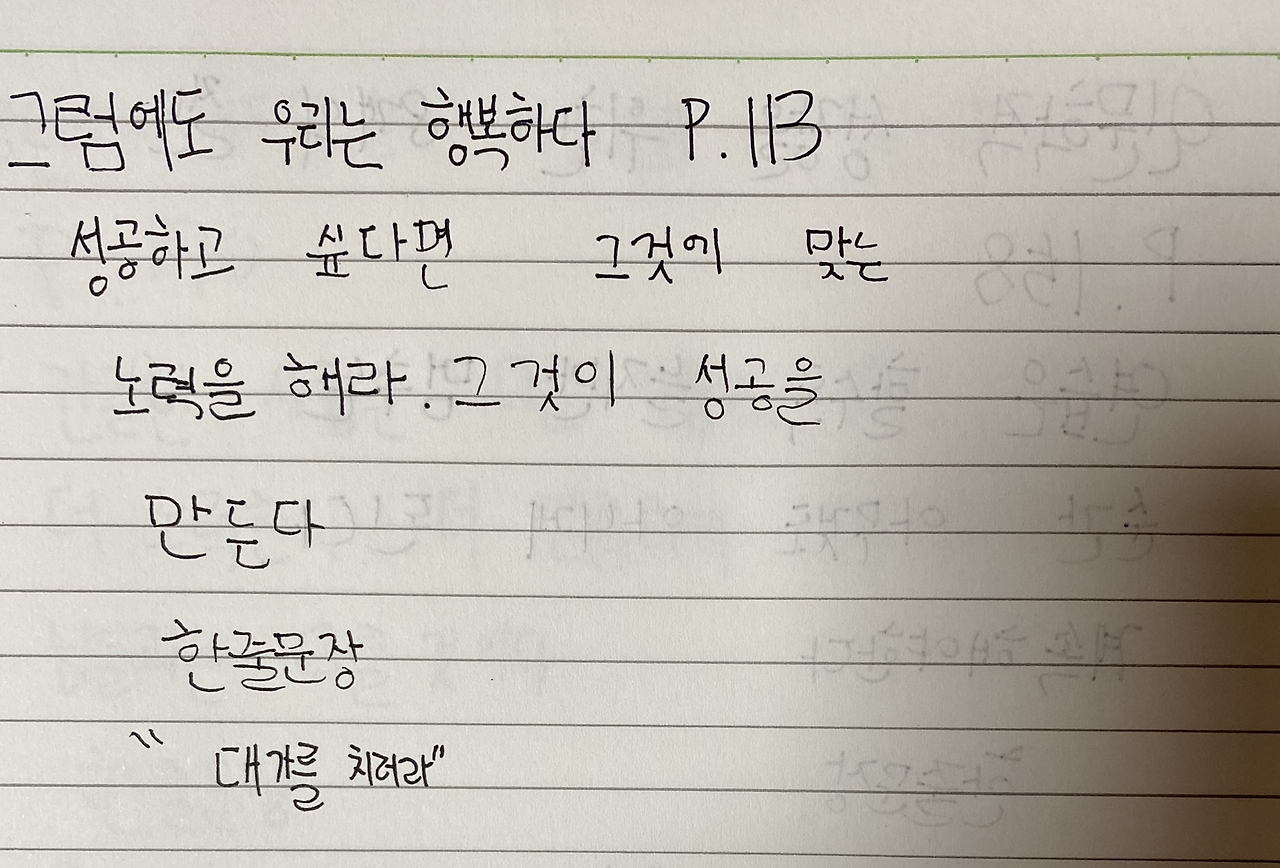 그럼에도 우리는 행복하다 P.113
성공하고 싶다면 그것에 맞는
노력을 해라. 그것이 성공을
만든다
한줄문장
"대가를 치러라"